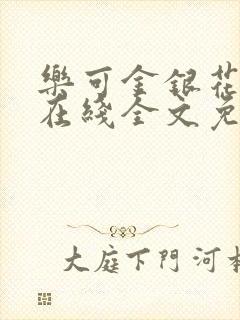 樂可金銀花
在綫全文免
大庭下門河